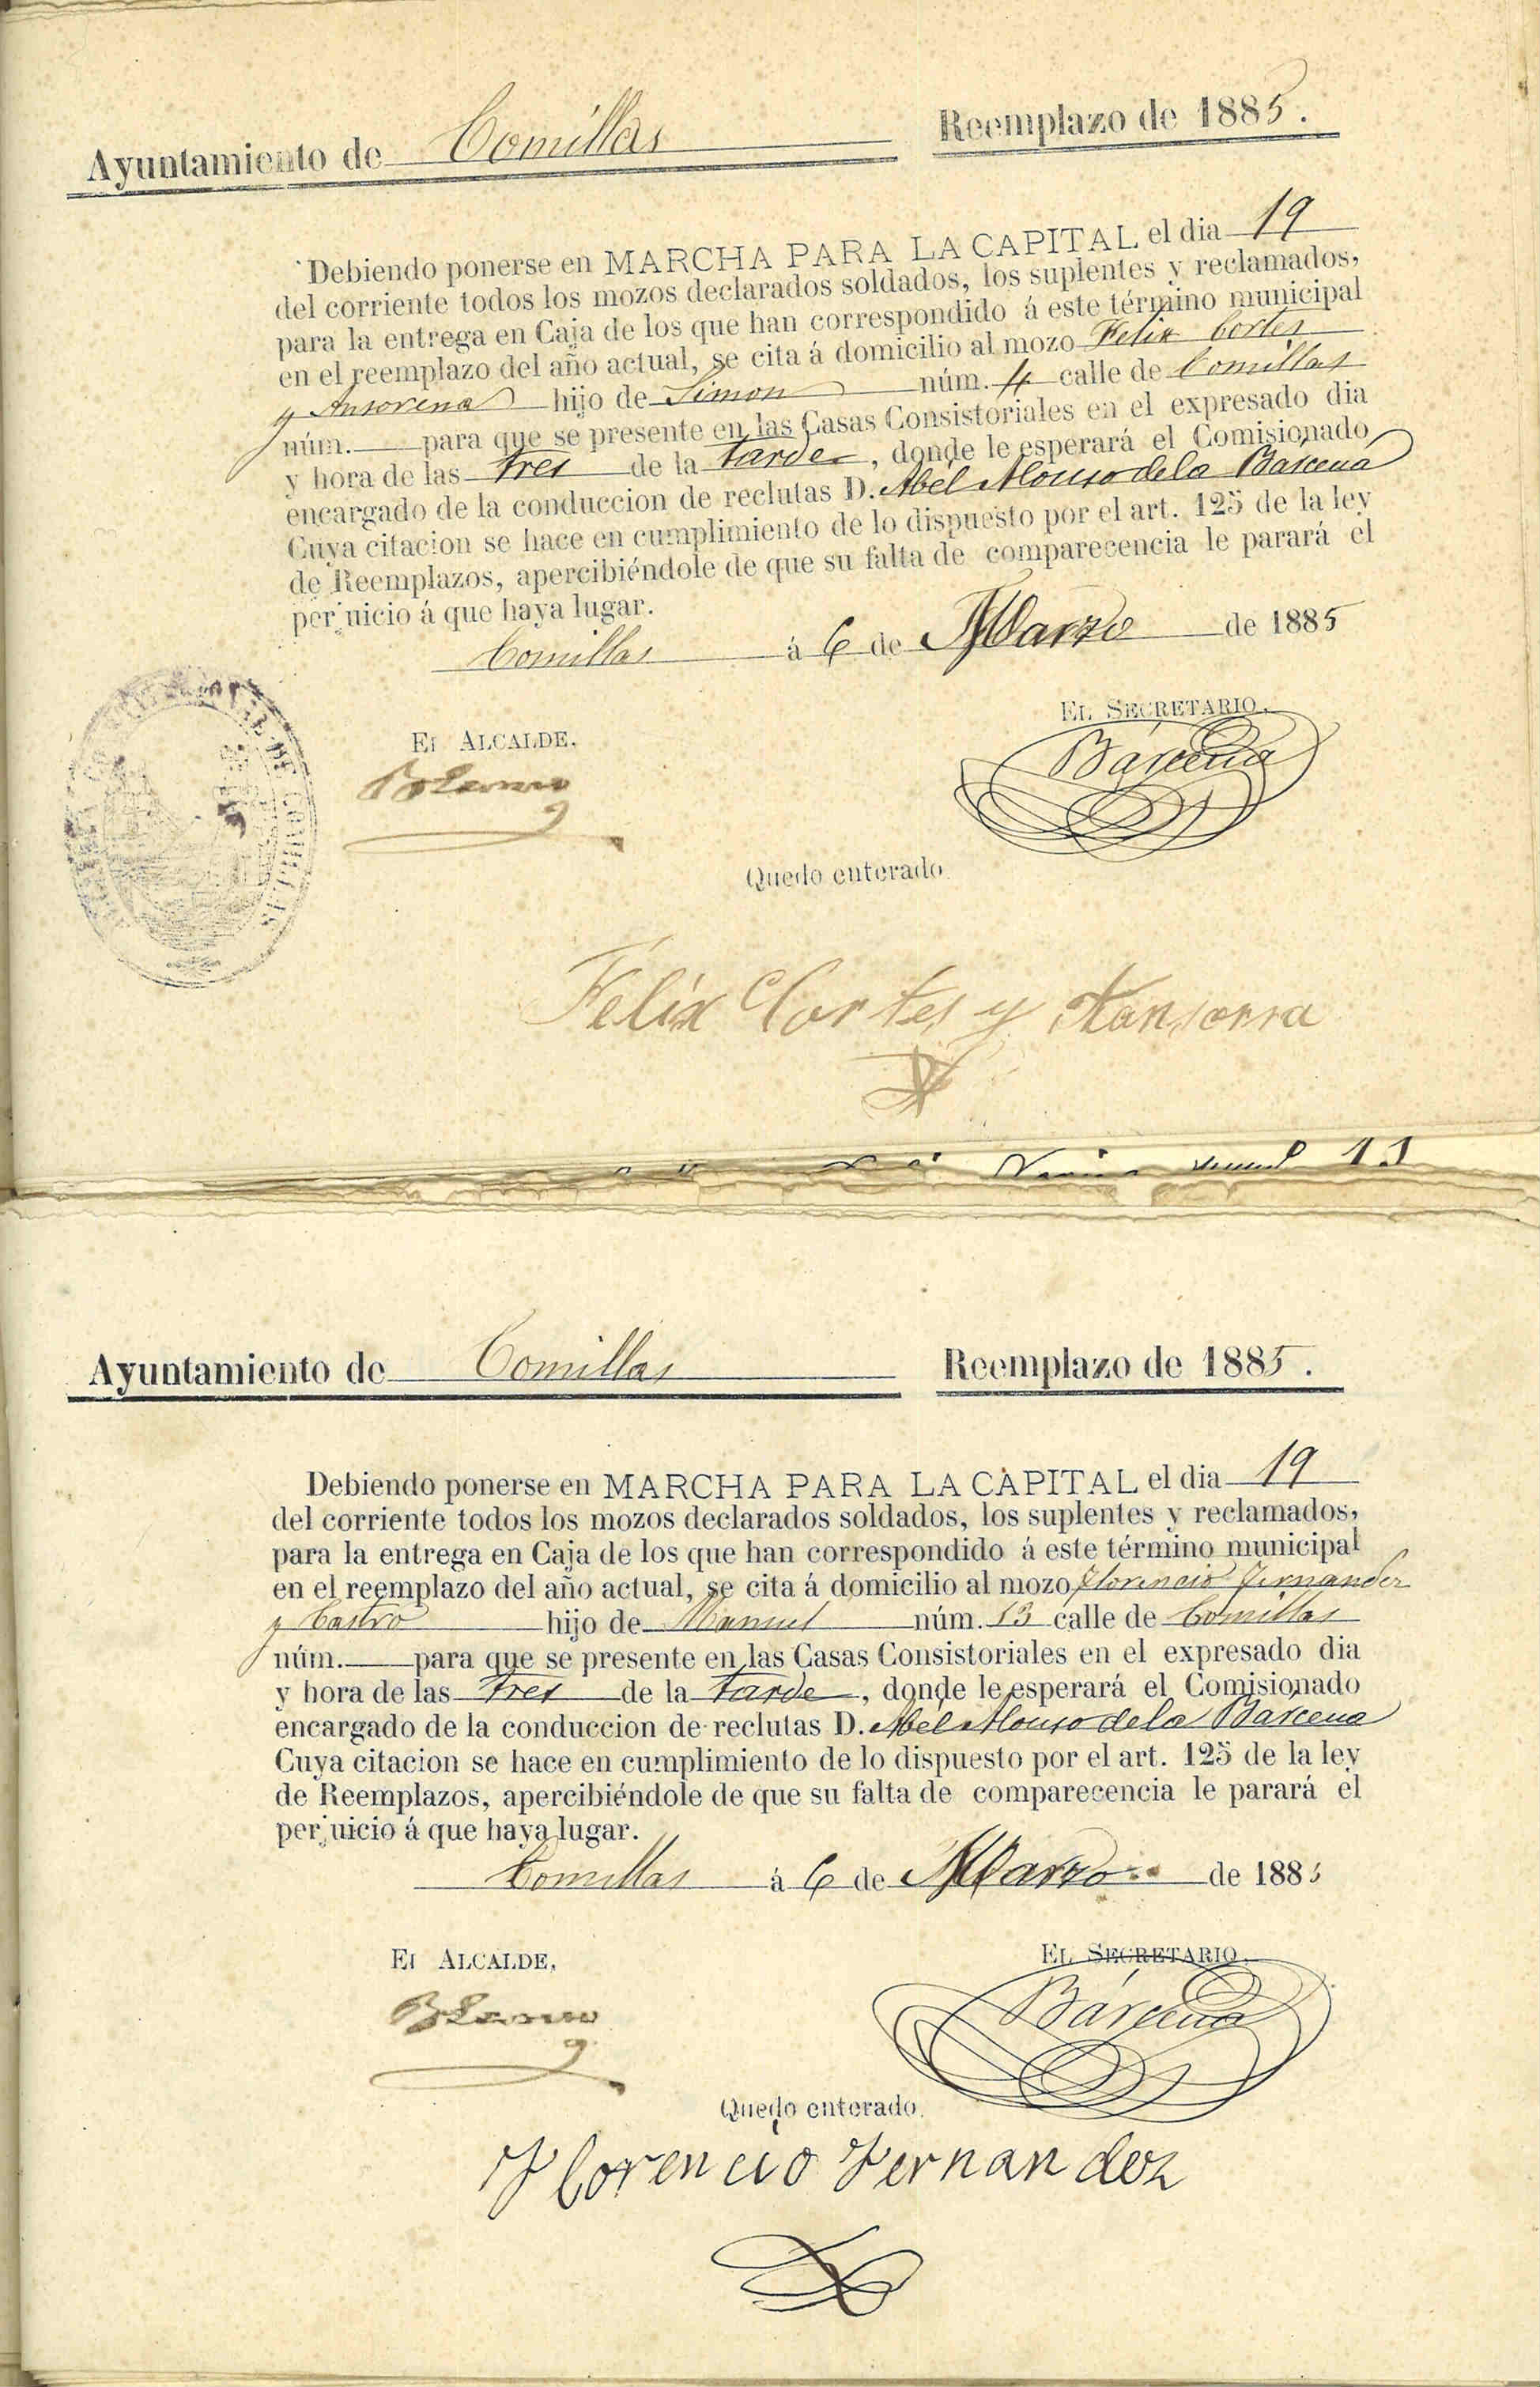 Ayuntamiento de Comillas Reemplazo de 1885.
Debiendo ponerse en MARCHA PARA LA CAPITAL el dia 19
del corriente todos los mozos declarados soldados, los suplentes y reclamados,
para la entrega en Caja de los que han correspondido á este término municipal
en el reemplazo del año actual, se cita á domicilio al mozo Felix Cortes
y Ansorena hijo de Simon núm. 4 calle de Comillas
núm. para que se presente en las Casas Consistoriales en el expresado dia
y hora de las tres de la tarde, donde le esperará el Comisionado
encargado de la conduccion de reclutas D. Abél Alonso de la Bárcena
Cuya citacion se hace en cumplimiento de lo dispuesto por el art. 125 de la ley
de Reemplazos, apercibiéndole de que su falta de comparecencia le parará el
perjuicio á que haya lugar.
Comillas á 6 de Marzo de 1885
El Alcalde, El Secretario,
Bárcena
Quedo enterado.
Felix Cortes y
Ayuntamiento de Comillas Reemplazo de 1885.
Debiendo ponerse en MARCHA PARA LA CAPITAL el dia 19
del corriente todos los mozos declarados soldados, los suplentes y reclamados,
para la entrega en Caja de los que han correspondido á este término municipal
en el reemplazo del año actual, se cita á domicilio al mozo Florencio Fernandez
y Castro hijo de Manuel núm. 13 calle de Comillas
núm. para que se presente en las Casas Consistoriales en el expresado dia
y hora de las tres de la tarde, donde le esperará el Comisionado
encargado de la conduccion de reclutas D. Abél Alonso de la Bárcena
Cuya citacion se hace en cumplimiento de lo dispuesto por el art. 125 de la ley
de Reemplazos, apercibiéndole de que su falta de comparecencia le parará el
perjuicio á que haya lugar.
Comillas á 6 de Marzo de 1885
El Alcalde, El Secretario,
Bárcena
Quedo enterado.
Florencio Fernandez